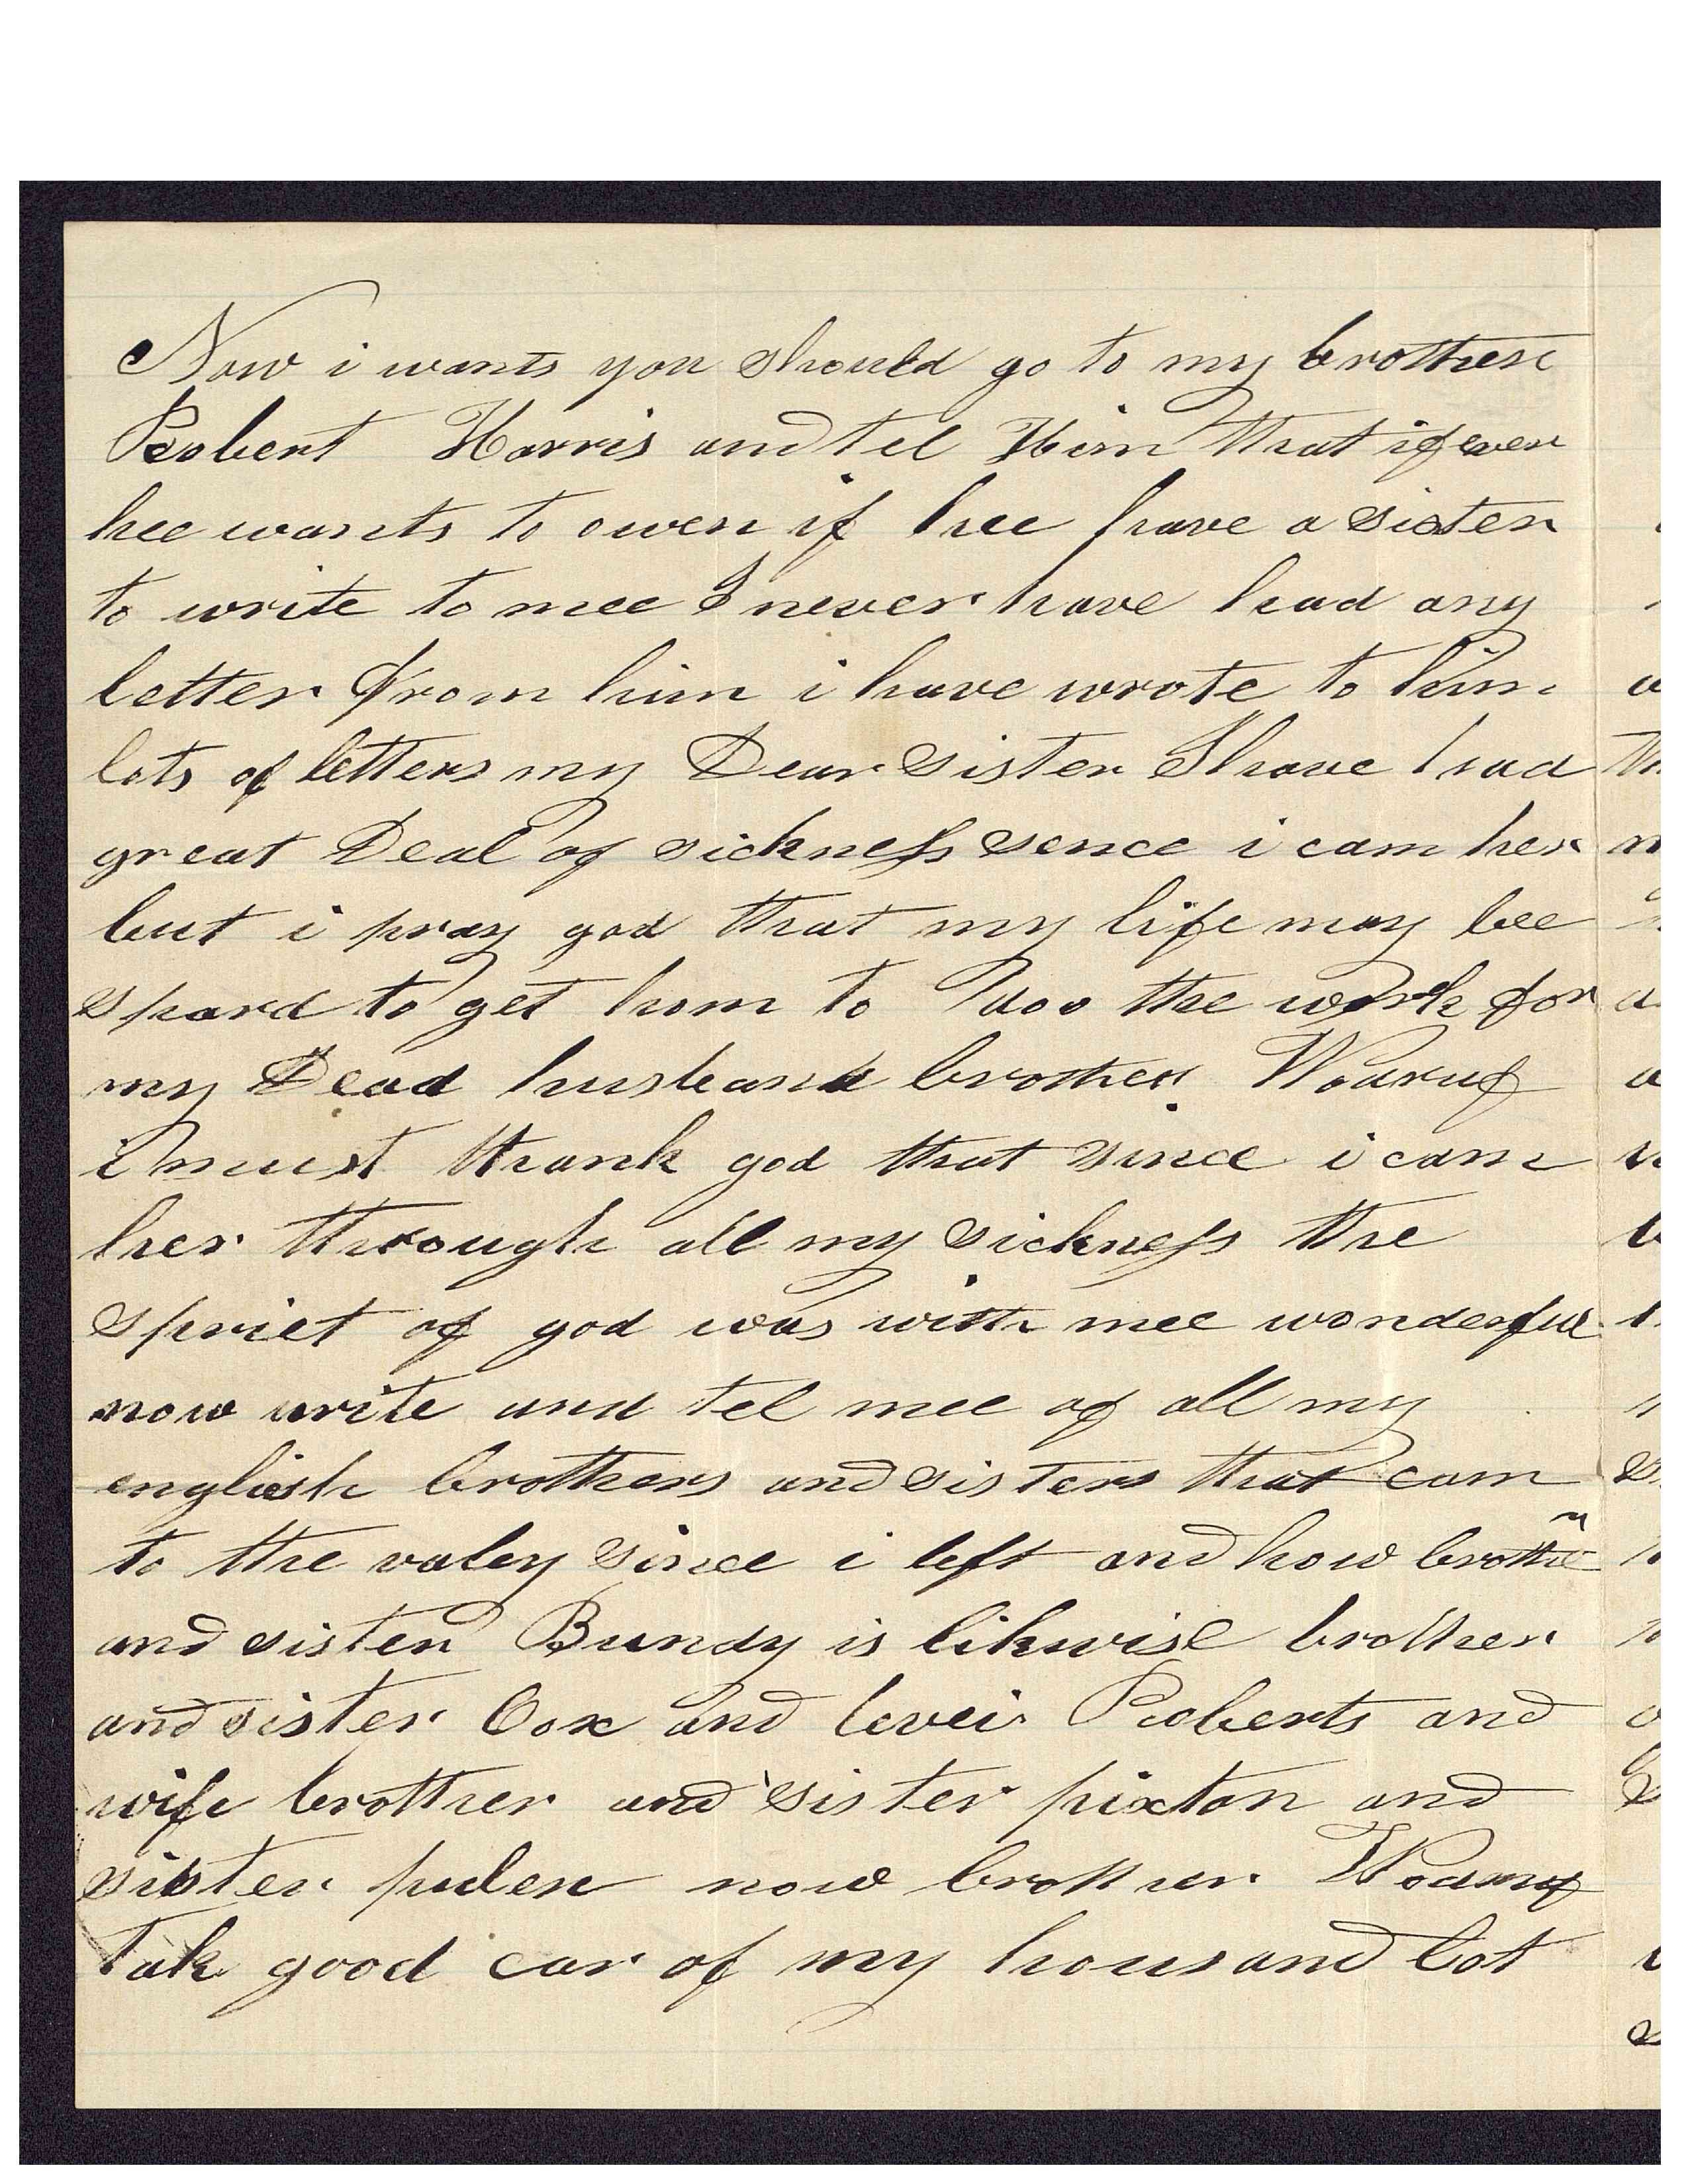 Now i wants you should go to my brother
Robert Harris and tel Him that if ever
hee wants to owen if hee have a sister
to write to mee I never have had any
letter from him i have wrote to him
lots of letters my Dear sister I have had
great Deal of sickness sence i cam her
but i pray god that my life may bee
spard to get hom to doo the work for
my Dead husband brother Wodruf
i must thank god that since i cam
her through all my sickness the
spriet of god was with mee wonderful
now write and tel mee of all my
english brothers and sisters that cam
to the valey since i left and how brother
and sister Bundy is likwise brother
and sister Cox and levei Roberts and
wife brother and sister pixton and
sister pulen now brother Wodruf
Tak good car of my hous and Lot